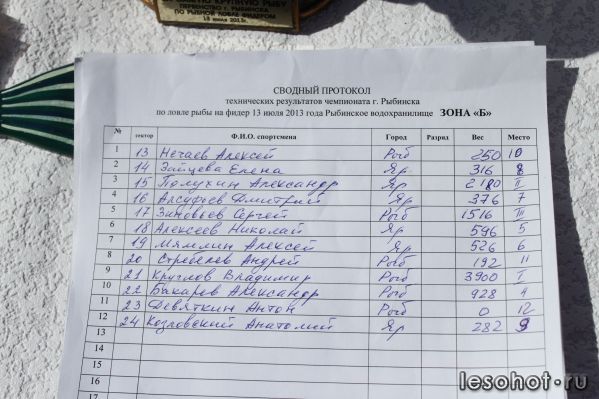 КРУПНУЮ РЫБУ
ПЕРВЕНСТВО Г. РЫБИНСКА
ПО РЫБНОЙ ЛОВЛЕ ФИДЕРОМ
13 июля 2013г.
СВОДНЫЙ ПРОТОКОЛ
технических результатов чемпионата г. Рыбинска
по ловле рыбы на фидер 13 июля 2013 года Рыбинское водохранилище ЗОНА «Б»
№ сектор Ф.И.О. спортсмена Город Разряд Вес Место
1 13 Нечаев Алексей Рыб 250 10
2 14 Зайцева Елена Яр 316 8
3 15 Полухин Александр Яр 2180 II
4 16 Алсуфьев Дмитрий Яр 376 7
5 17 Зиновьев Сергей Рыб 1516 III
6 18 Алексеев Николай Яр 596 5
7 19 Мямлин Алексей Яр 526 6
8 20 Стребелев Андрей Рыб 192 11
9 21 Круглов Владимир Рыб 3900 I
10 22 Бакарев Александр Рыб 928 4
11 23 Девяткин Антон Рыб 0 12
12 24 Козловский Анатолий Яр 282 9
13
14
15
16
17
lesohot.ru